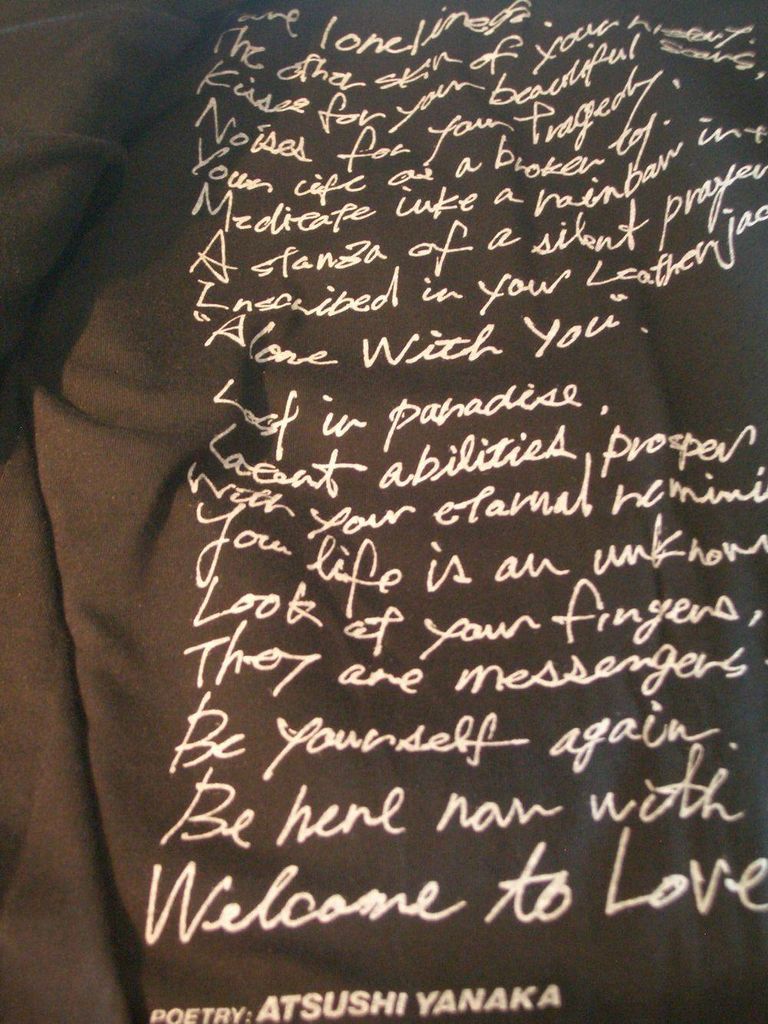 are loneliness.
The other skin of your
Kisses for your beautiful scars,
Noises for your Tragedy.
Your life as a broken toy.
Medicate like a rainbow in
A stanza of a silent prayer
Inscribed in your Leather jac
"Alone With You".
Lost in paradise,
Latent abilities prosper
With your eternal
Your life is an unknown
Look at your fingers,
They are messengers
Be yourself again.
Be here now with
Welcome to Love
POETRY: ATSUSHI YANAKA